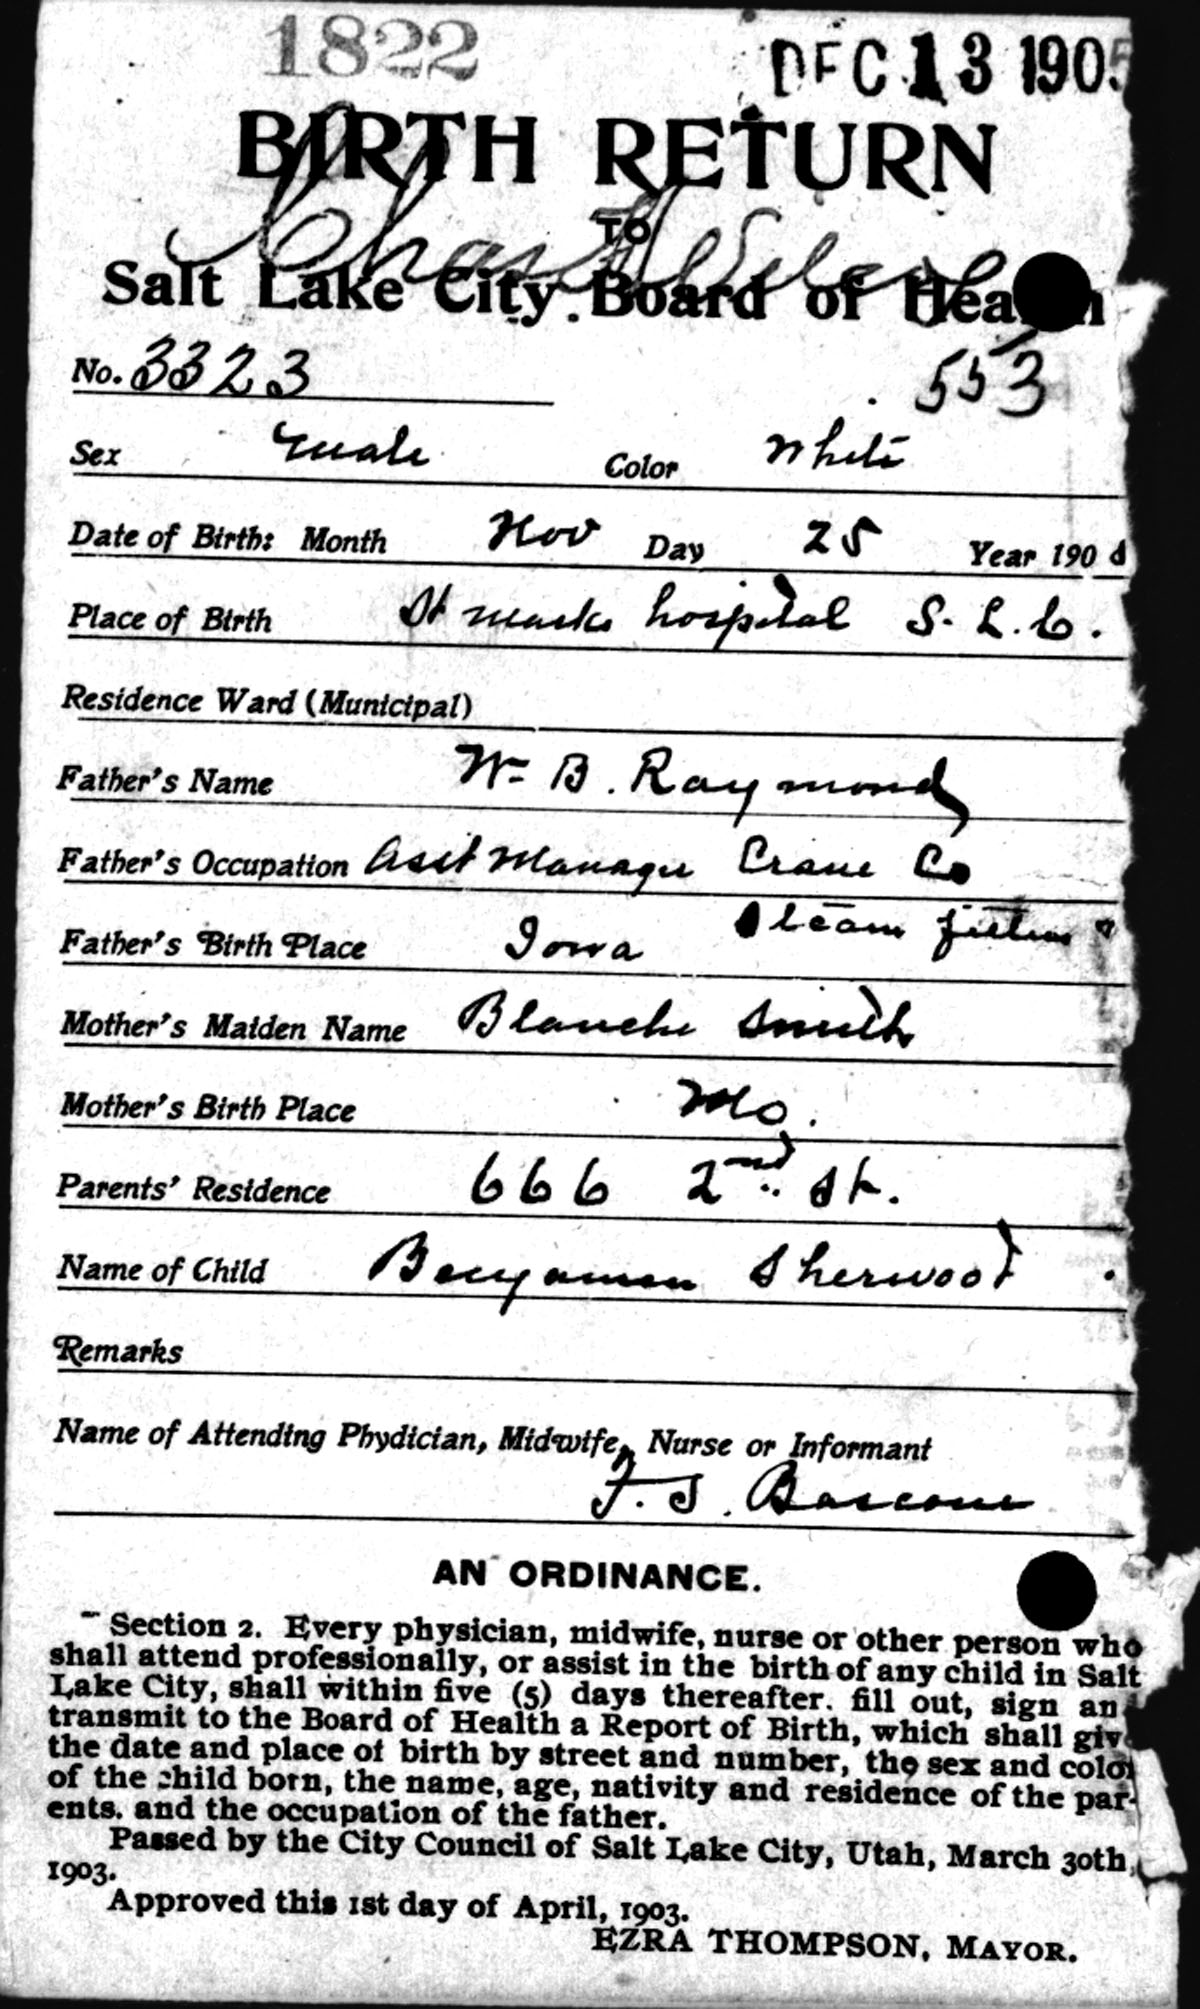 1822
DEC 13 1905
BIRTH RETURN
TO
Chas
Salt Lake City Board of Health
No. 3323 553
Sex Male Color White
Date of Birth: Month Nov Day 25 Year 190
Place of Birth St Marks hospital S. L. C.
Residence Ward (Municipal)
Father's Name Wm B. Raymond
Father's Occupation Asst Manager Crane Co
Steam
Father's Birth Place Iowa
Mother's Maiden Name Blanche Smith
Mother's Birth Place Mo.
Parents' Residence 666 2nd St.
Name of Child Benjamen Sherwood
Remarks
Name of Attending Phydician, Midwife, Nurse or Informant
F. S. Bascom
AN ORDINANCE.
Section 2. Every physician, midwife, nurse or other person who
shall attend professionally, or assist in the birth of any child in Salt
Lake City, shall within five (5) days thereafter. fill out, sign an
transmit to the Board of Health a Report of Birth, which shall give
the date and place of birth by street and number, the sex and color
of the child born, the name, age, nativity and residence of the par-
ents. and the occupation of the father.
Passed by the City Council of Salt Lake City, Utah, March 30th,
1903.
Approved this 1st day of April, 1903.
EZRA THOMPSON, MAYOR.